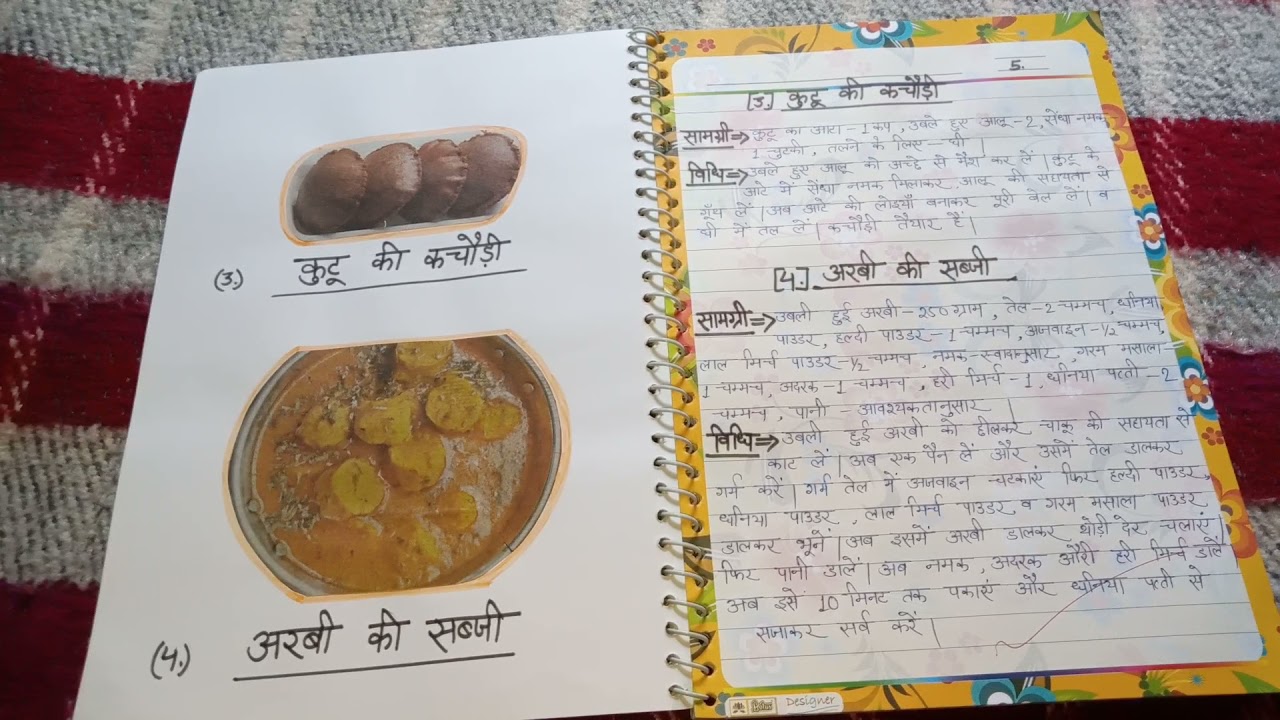 (3.) कुट्टू की कचौड़ी
(4.) अरबी की सब्जी
5.
[3.] कुट्टू की कचौड़ी
सामग्री⇒ कुट्टू का आटा - 1 कप, उबले हुए आलू - 2, सेंधा नमक-
1 चुटकी, तलने के लिए - घी |
विधि⇒ उबले हुए आलू को अच्छे से मैश कर लें | कुट्टू के
आटे में सेंधा नमक मिलाकर आलू की सहायता से
गूँथ लें | अब आटे की लोइयाँ बनाकर पूरी बेल लें | व
घी में तल लें | कचौड़ी तैयार हैं |
[4.] अरबी की सब्जी
सामग्री⇒ उबली हुई अरबी - 250 ग्राम, तेल - 2 चम्मच, धनिया
पाउडर, हल्दी पाउडर - 1 चम्मच, अजवाइन - ½ चम्मच,
लाल मिर्च पाउडर - ½ चम्मच, नमक - स्वादानुसार, गरम मसाला -
1 चम्मच, अदरक - 1 चम्मच, हरी मिर्च - 1, धनिया पत्ती - 2
चम्मच, पानी - आवश्यकतानुसार |
विधि⇒ उबली हुई अरबी को छीलकर चाकू की सहायता से
काट लें | अब एक पैन लें और उसमें तेल डालकर
गर्म करें | गर्म तेल में अजवाइन चटकाएं फिर हल्दी पाउडर,
धनिया पाउडर, लाल मिर्च पाउडर व गरम मसाला पाउडर
डालकर भूनें | अब इसमें अरबी डालकर थोड़ी देर चलाएं
फिर पानी डालें | अब नमक, अदरक और हरी मिर्च डालें
अब इसे 10 मिनट तक पकाएं और धनिया पत्ती से
सजाकर सर्व करें |
Designer